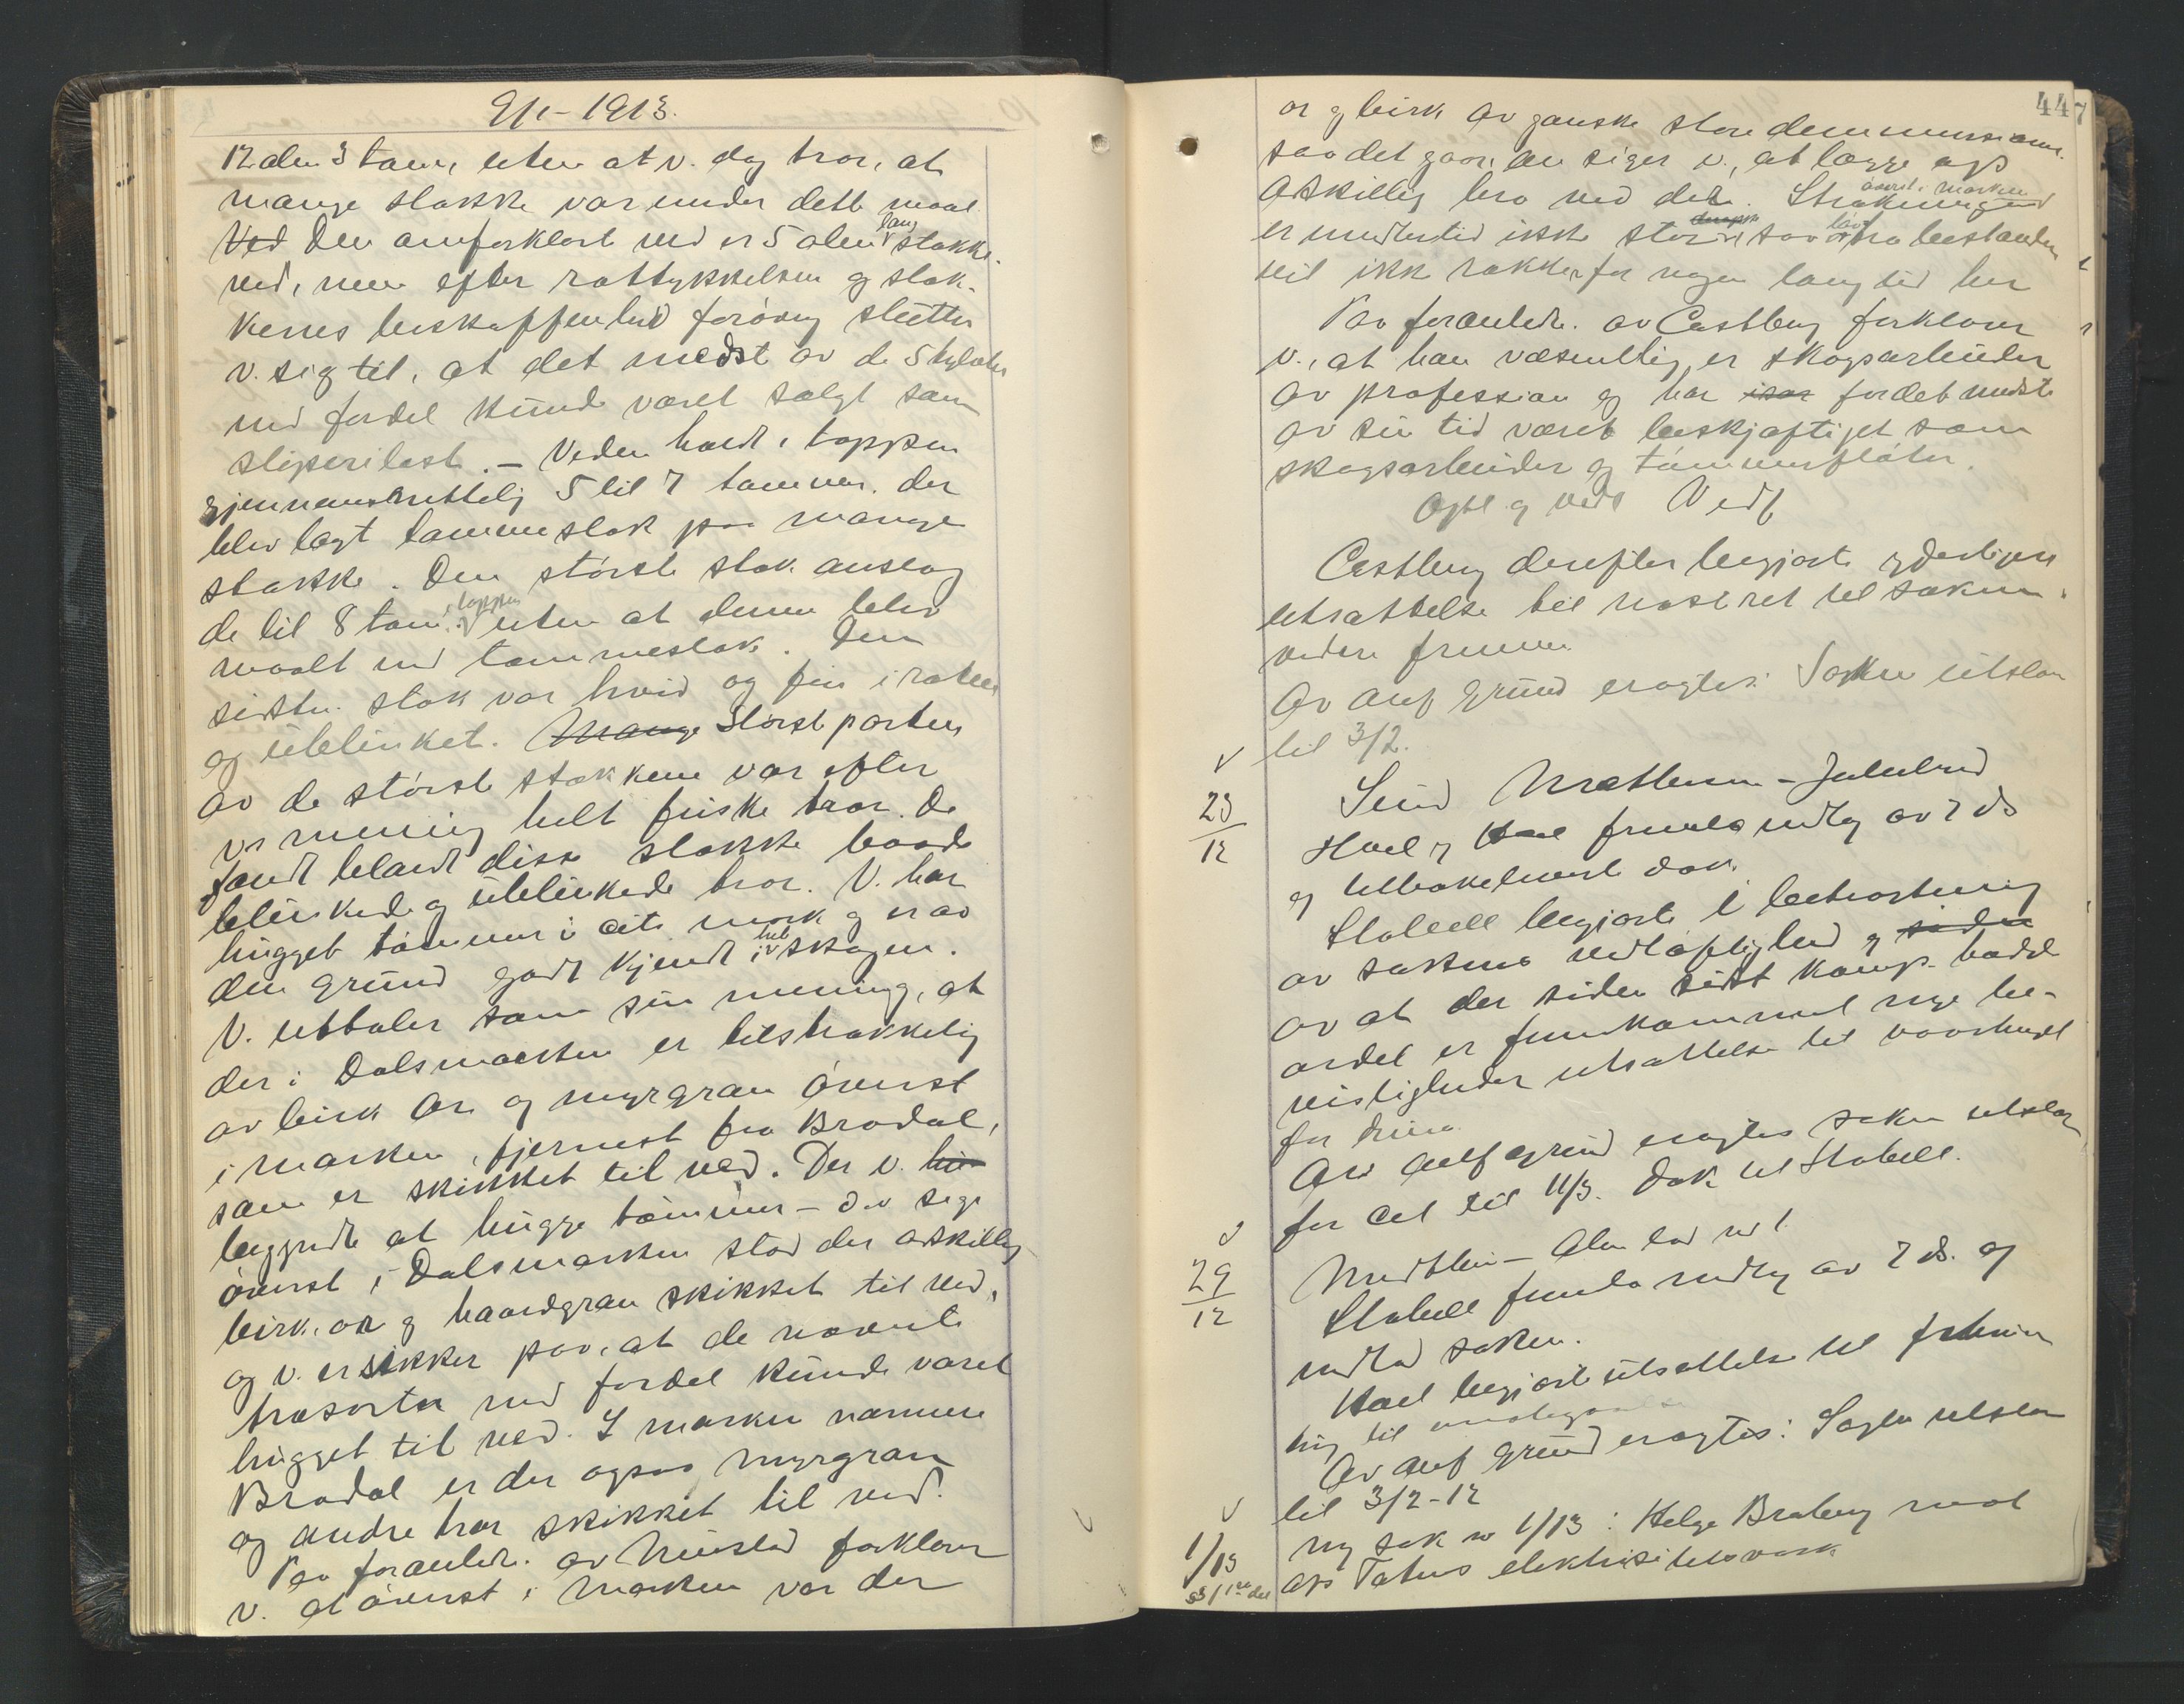 9/1-1913.
12 alen 3 tom, uten at v. dog tror, at
mange stokke var under dette maal.
Ved Den omforklart ved er 5 alen lang stokke-
ved, men efter rottykkelsen og stok-
kenes beskaffenhed forøvrig slutter
v. sig til, at det medst av de 5 tylvter
med fordel kunde været solgt som
sliperilast. - Veden holdt i toppen
gjennemsnittelig 5 til 7 tommer. der
blev lagt tommestok paa mange
stokke. Den største stok anslog
de til 8 tom. i toppen uten at denne blev
maalt med tommestok. Den
sidstn. stok var hvid og fin i roten
og ublinket. Mange Størstparten
av de største stokkene var efter
v's mening helt friske trær. De
fandt blandt disse stokke baade
blinkede og ublinkede trær. V. har
hugget tømmer i cits mark og er av
den grund godt kjendt i hele skogen.
V. uttaler som sin mening, at
der i Dalsmarken er tilstrækkelig
av birk or og myrgran øverst
i marken, fjernest fra Brodal,
som er skikket til ved. Der v.
begyndte at hugge tømmer - d.v. sige
øverst i Dalsmarken stod der adskillig
birk, or og haardgran skikket til ved,
og v. er sikker paa, at de nævnte
træsorter med fordel kunde været
hugget til ved. I marken nærmere
Brodal er der ogsaa myrgran
og andre trær skikket til ved.
Paa foranledn. av forklarer
v. at øverst i marken var der
447
or og birk av ganske store demensioner.
saa det gaar an siger v., at lægge op
adskillig bra ved der. Strækningen øverst i marken
er imidlertid ikke stor saa løvtræbestanden
vil ikke række for nogen lang tid her
Paa foranledn. av Castberg forklarer
v., at han væsentlig er skogsarbeider
av profession og har især for det medste
av sin tid været beskjæftiget som
skogsarbeider og tømmerfløter.
Oplæst og vedt. Vedf
Castberg derefter begjærte yderligere
utsættelse til næste ret til sakens
videre fremme
Av anf grund eragtes: Saken utstaar
til 3/2.
v
23/12
Hoel og Hoel fremla indlæg av 7 ds
og tilbakeleverte dok.
Stabell begjærte i betragtning
av sakens vidløftighed og siden
av at der siden sidst kamp.
er fremkommet nye be-
visligheder utsættelse til
Av anf grund eragtes saken utstaar
for cit til 11/3. Dok til Stabell.
v
29/12
Stabell fremla indlæg av 7 ds. og
indlod saken.
Hoel begjærte utsættelse til
til imøtegaaelse
Av anf grund eragtes: Sagen utstaar
til 3/2-12
v
1/13
ny sak nr 1/13: Helge Braberg mot
a/s Totens elektrisitetsverk